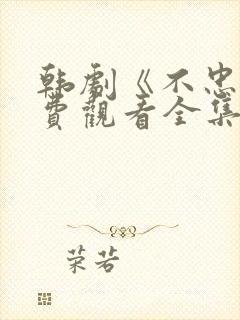 韩剧《不忠
费觀看全集
荣若